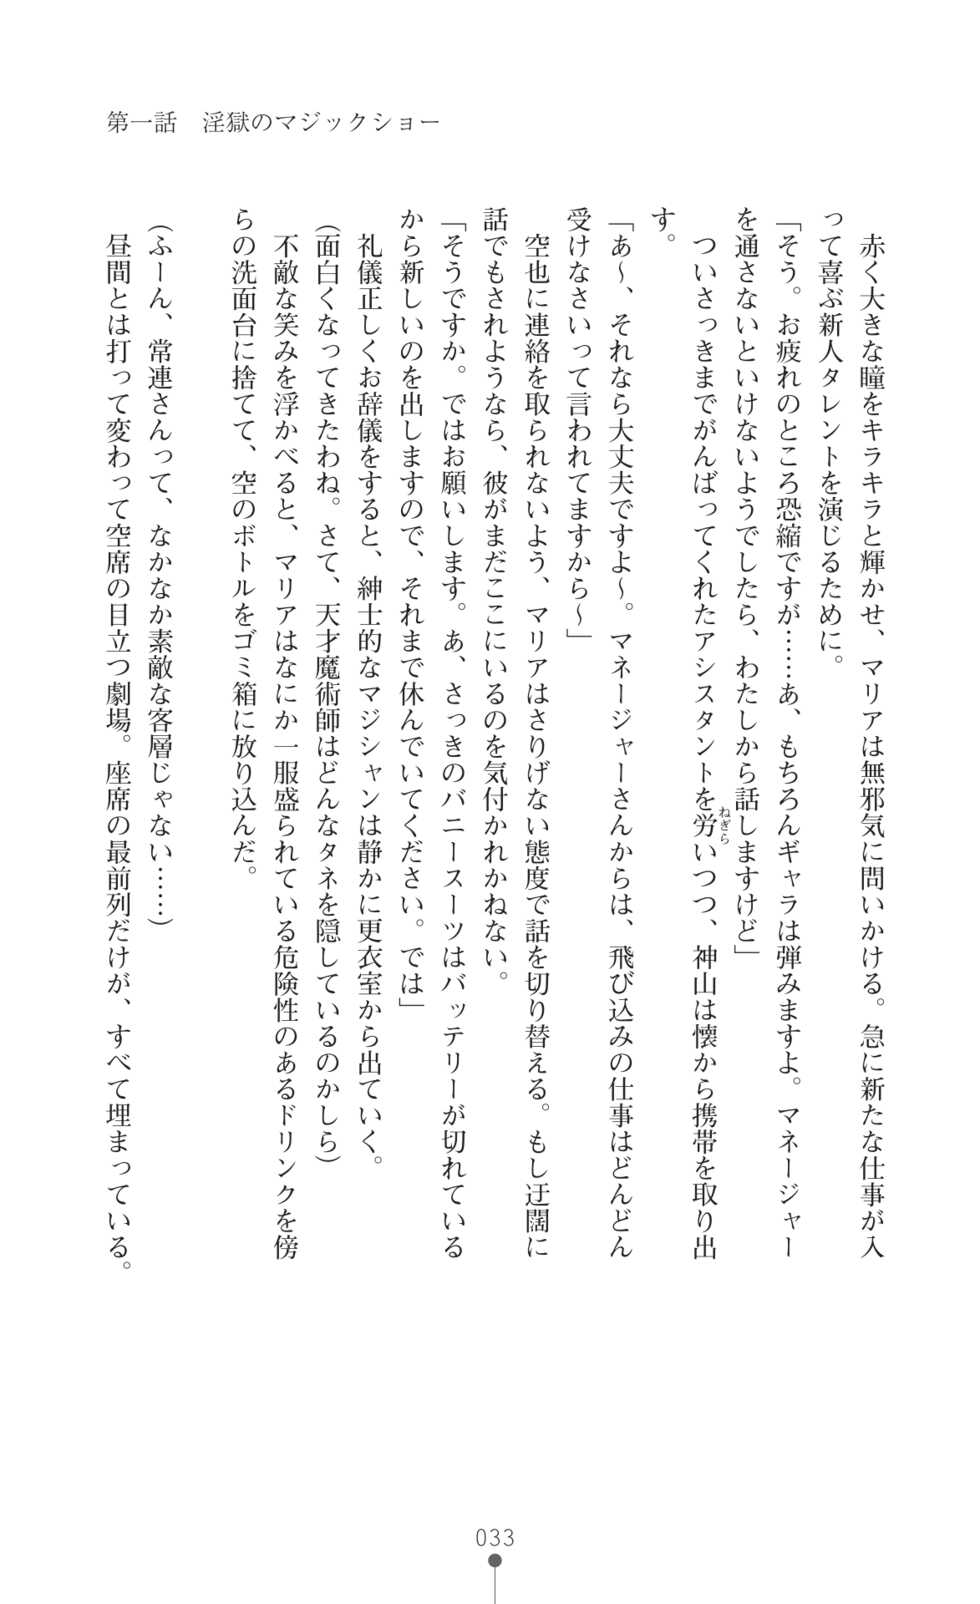 第一話　淫獄のマジックショー
　赤く大きな瞳をキラキラと輝かせ、マリアは無邪気に問いかける。急に新たな仕事が入
って喜ぶ新人タレントを演じるために。
「そう。お疲れのところ恐縮ですが……あ、もちろんギャラは弾みますよ。マネージャー
を通さないといけないようでしたら、わたしから話しますけど」
　ついさっきまでがんばってくれたアシスタントを労いつつ、神山は懐から携帯を取り出
ねぎら
す。
「あ～、それなら大丈夫ですよ～。マネージャーさんからは、飛び込みの仕事はどんどん
受けなさいって言われてますから～」
　空也に連絡を取られないよう、マリアはさりげない態度で話を切り替える。もし迂闊に
話でもされようなら、彼がまだここにいるのを気付かれかねない。
「そうですか。ではお願いします。あ、さっきのバニースーツはバッテリーが切れている
から新しいのを出しますので、それまで休んでいてください。では」
　礼儀正しくお辞儀をすると、紳士的なマジシャンは静かに更衣室から出ていく。
（面白くなってきたわね。さて、天才魔術師はどんなタネを隠しているのかしら）
　不敵な笑みを浮かべると、マリアはなにか一服盛られている危険性のあるドリンクを傍
らの洗面台に捨てて、空のボトルをゴミ箱に放り込んだ。
（ふーん、常連さんって、なかなか素敵な客層じゃない……）
　昼間とは打って変わって空席の目立つ劇場。座席の最前列だけが、すべて埋まっている。
033